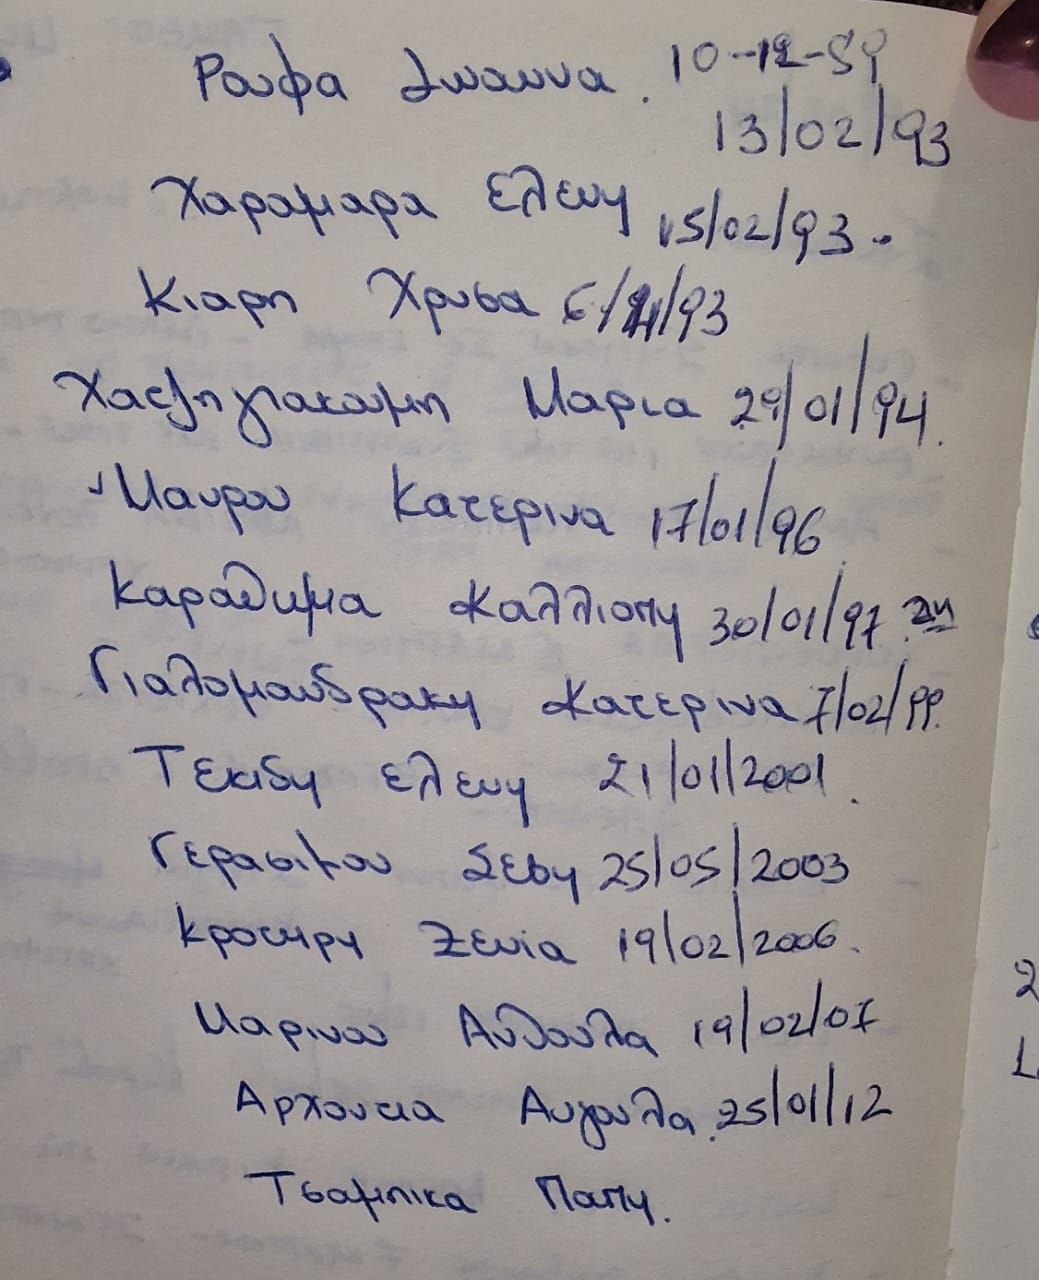 Ρουφα Ιωαννα. 10-12-89
13/02/93
Χαραμαρα Ελενη 15/02/93-
Κιαρη Χρυσα 6/11/93
Χατζηγιακουμη Μαρια 29/01/94.
Μαυρου Κατερινα 17/01/96
Καραθυμα Καλλιοπη 30/01/97. 2η
Γιαλομανδρακη Κατερινα 7/02/99.
Τεκιδη Ελενη 21/01/2001.
Γερασιμου Σεβη 25/05/2003
Κροτηρη Ξενια 19/02/2006.
Μαρινου Ανθουλα 19/02/07
Αρχοντια Αυγουλα. 25/01/12
Τσαμπικα Παπη.